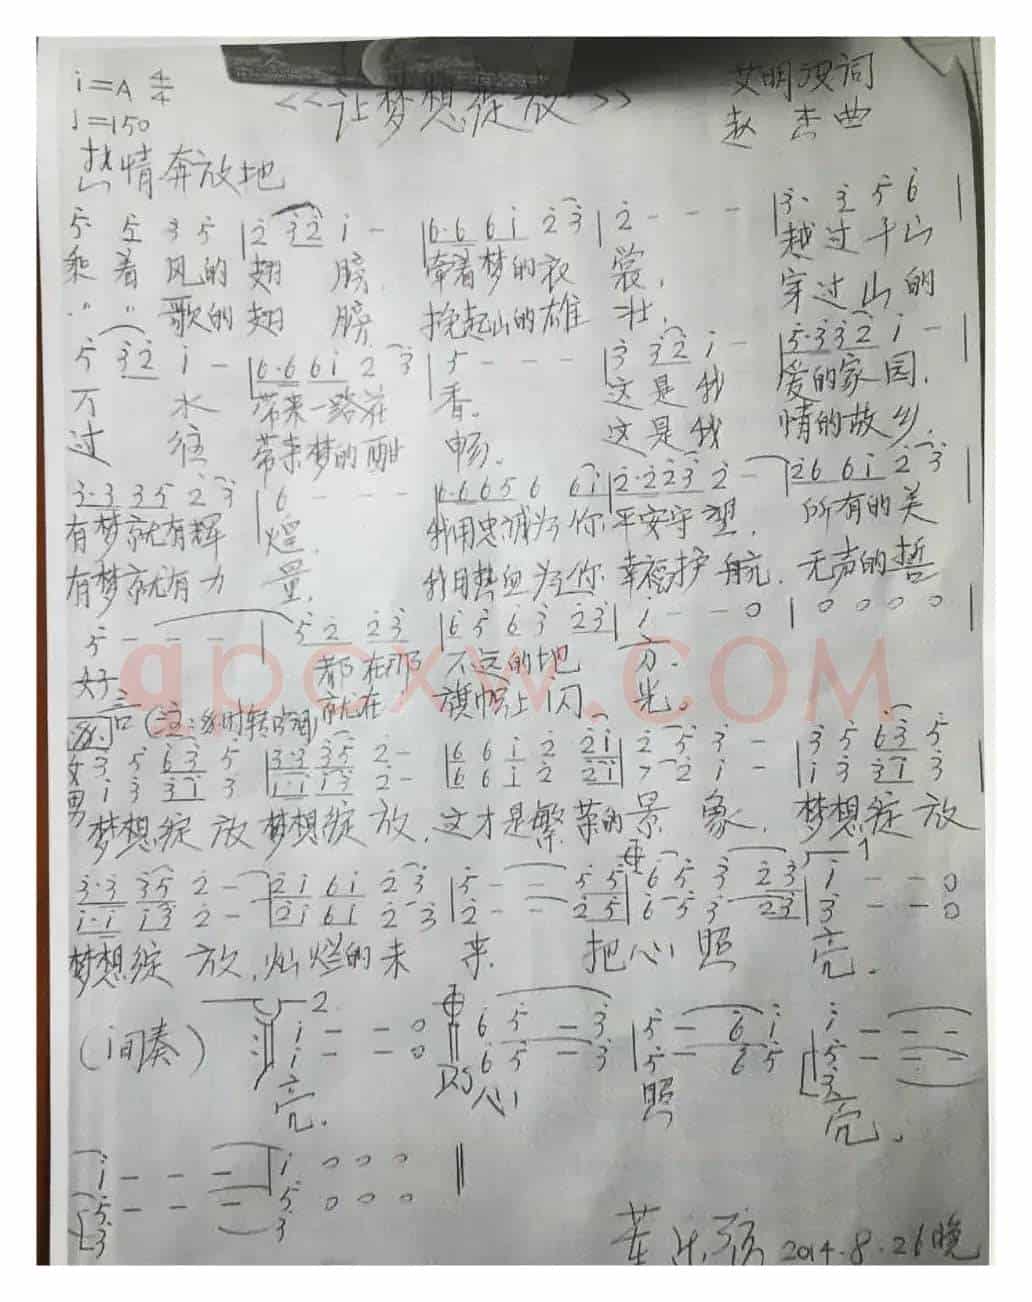 i=A 4/4
《让梦想绽放》 艾明波词
♩=150 赵杰曲
热情奔放地
5· 5 3 5 | 2 3 2 i - | 6·6 6 i 2 3 | 2 - - - | 3· 3 5 6 |
乘着风的翅膀 牵着梦的衣裳, 越过千山
〃 〃 歌的翅膀 挽起山的雄壮, 穿过山的
5 3 2 i - | 6·6 6 i 2 3 | 5 - - - | 3 3 2 i - | 5·3 3 2 i - |
万水 带来一路花香。 这是我爱的家园,
过往 带来梦的酣畅。 这是我情的故乡,
3·3 3 5 2 3 | 6 - - - | 6·6 6 5 6 6 i | 2·2 2 3 2 - | 2 6 6 i 2 3 |
有梦就有辉煌, 我用忠诚为你平安守望, 所有的美
有梦就有力量, 我用热血为你幸福护航, 无声的誓
5 - - - | 5 2 2 3 | 6 5 6 3 2 3 | i - - 0 | 0 0 0 0 |
好 都在那 不远的地方。
言 (注: 反时转字调) 就在 旗帜上闪光。
女 3 5 6 3 5 | 3·3 3 5 2 - | 6 6 i 2 2 i | 2 5 3 - | 3 5 6 3 5
男 i 3 3 i 3 | i·i i 3 2 - | 6 6 i 2 2 i | 2 i - | i 3 3 i 3
梦想绽放 梦想绽放, 这才是繁荣的景象, 梦想绽放
3·3 3 5 2 - | 2 i 6 i 2 3 | 5 - - 5 5 | 6 5 3 2 3 | i - - 0
i·i i 3 2 - | 2 i 6 i 2 3 | 2 - - 2 5 | 6 5 3 2 3 | 3 - - 0
梦想绽放, 灿烂的未来 把心照亮。
2. i - - 0 ‖ 6 5 - 3 | 5 - 6 i | i - - -
(间奏) i - - 0 ‖ 6 5 - 3 | 5 - 6 5 | 5 - - -
D.S 3
亮。 心 照 亮。
i - - - | i 0 0 0 ‖
5 - - - | 5 0 0 0
3 3
2014.8.26晚
qpcxw.com